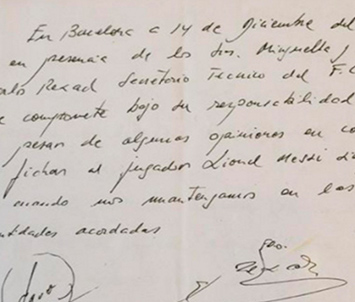 En Barcelona a 14 de Diciembre del
en presencia de los Srs. Minguella y
Rexach Secretario Técnico del F.C
compromete bajo su responsabilidad
pesar de algunas opiniones en co
fichar al jugador Lionel Messi
cuando nos mantengamos en las
ntidades acordadas